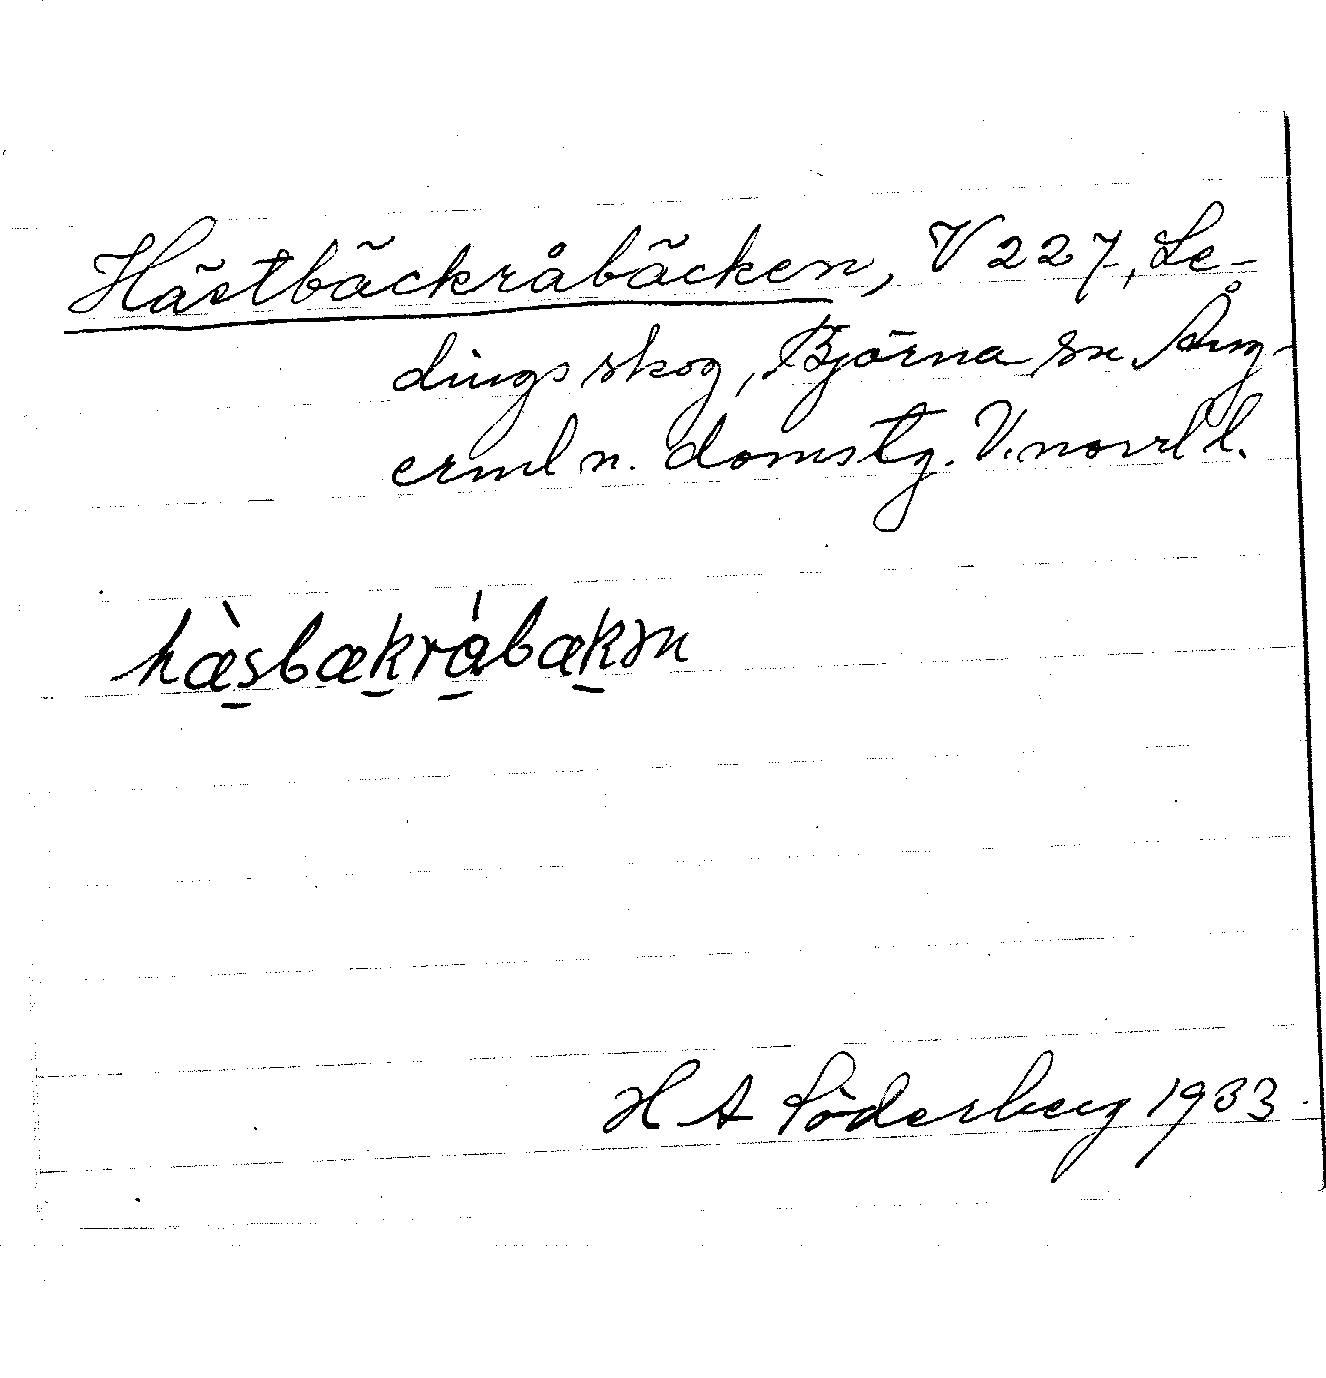 Hästbäckråbäcken, V 227, Le-
dingsskog, Björna sn Ång-
erml n. domstg. V.norrl l.
hæ̀sbækrábækən
H A Söderberg 1933